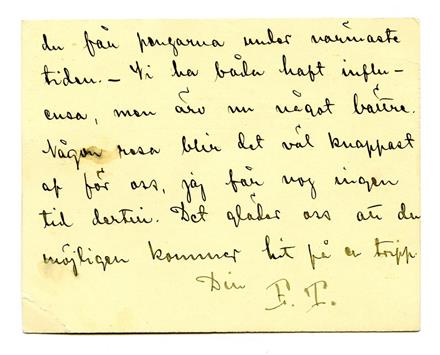 du får pengarna under närmaste
tiden. – Vi ha båda haft influ-
ensa, men äro nu något bättre.
Någon resa blir det väl knappast
af för oss, jag får nog ingen
tid dertill. Det gläder oss att du
möjligen kommer hit på en tripp.
Din
F. T.